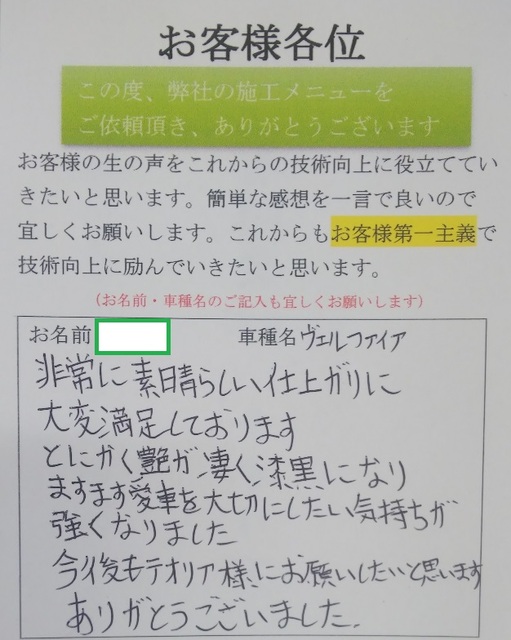 お客様各位
この度、弊社の施工メニューを
ご依頼頂き、ありがとうございます
お客様の生の声をこれからの技術向上に役立ててい
きたいと思います。簡単な感想を一言で良いので
宜しくお願いします。これからもお客様第一主義で
技術向上に励んでいきたいと思います。
(お名前・車種名のご記入も宜しくお願いします)
お名前 車種名 ヴェルファイア
非常に素晴らしい仕上がりに
大変満足しております
とにかく艶が凄く漆黒になり
ますます愛車を大切にしたい気持ちが
強くなりました
今後もテオリア様にお願いしたいと思います
ありがとうございました。